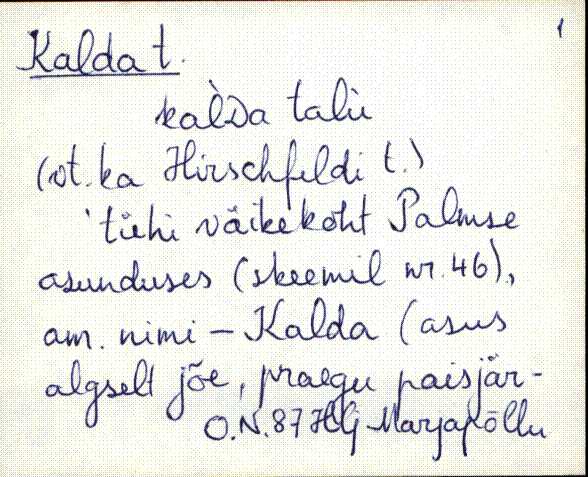 1
Kalda t.
kal̀Da talu
(vt. ka Hirschfeldi t.)
'tühi väikekoht Palmse
asunduses (skeemil nr. 46),
am. nimi – Kalda (asus
algselt jõe, praegu paisjär-
O.N. 87 HG Marjapõllu